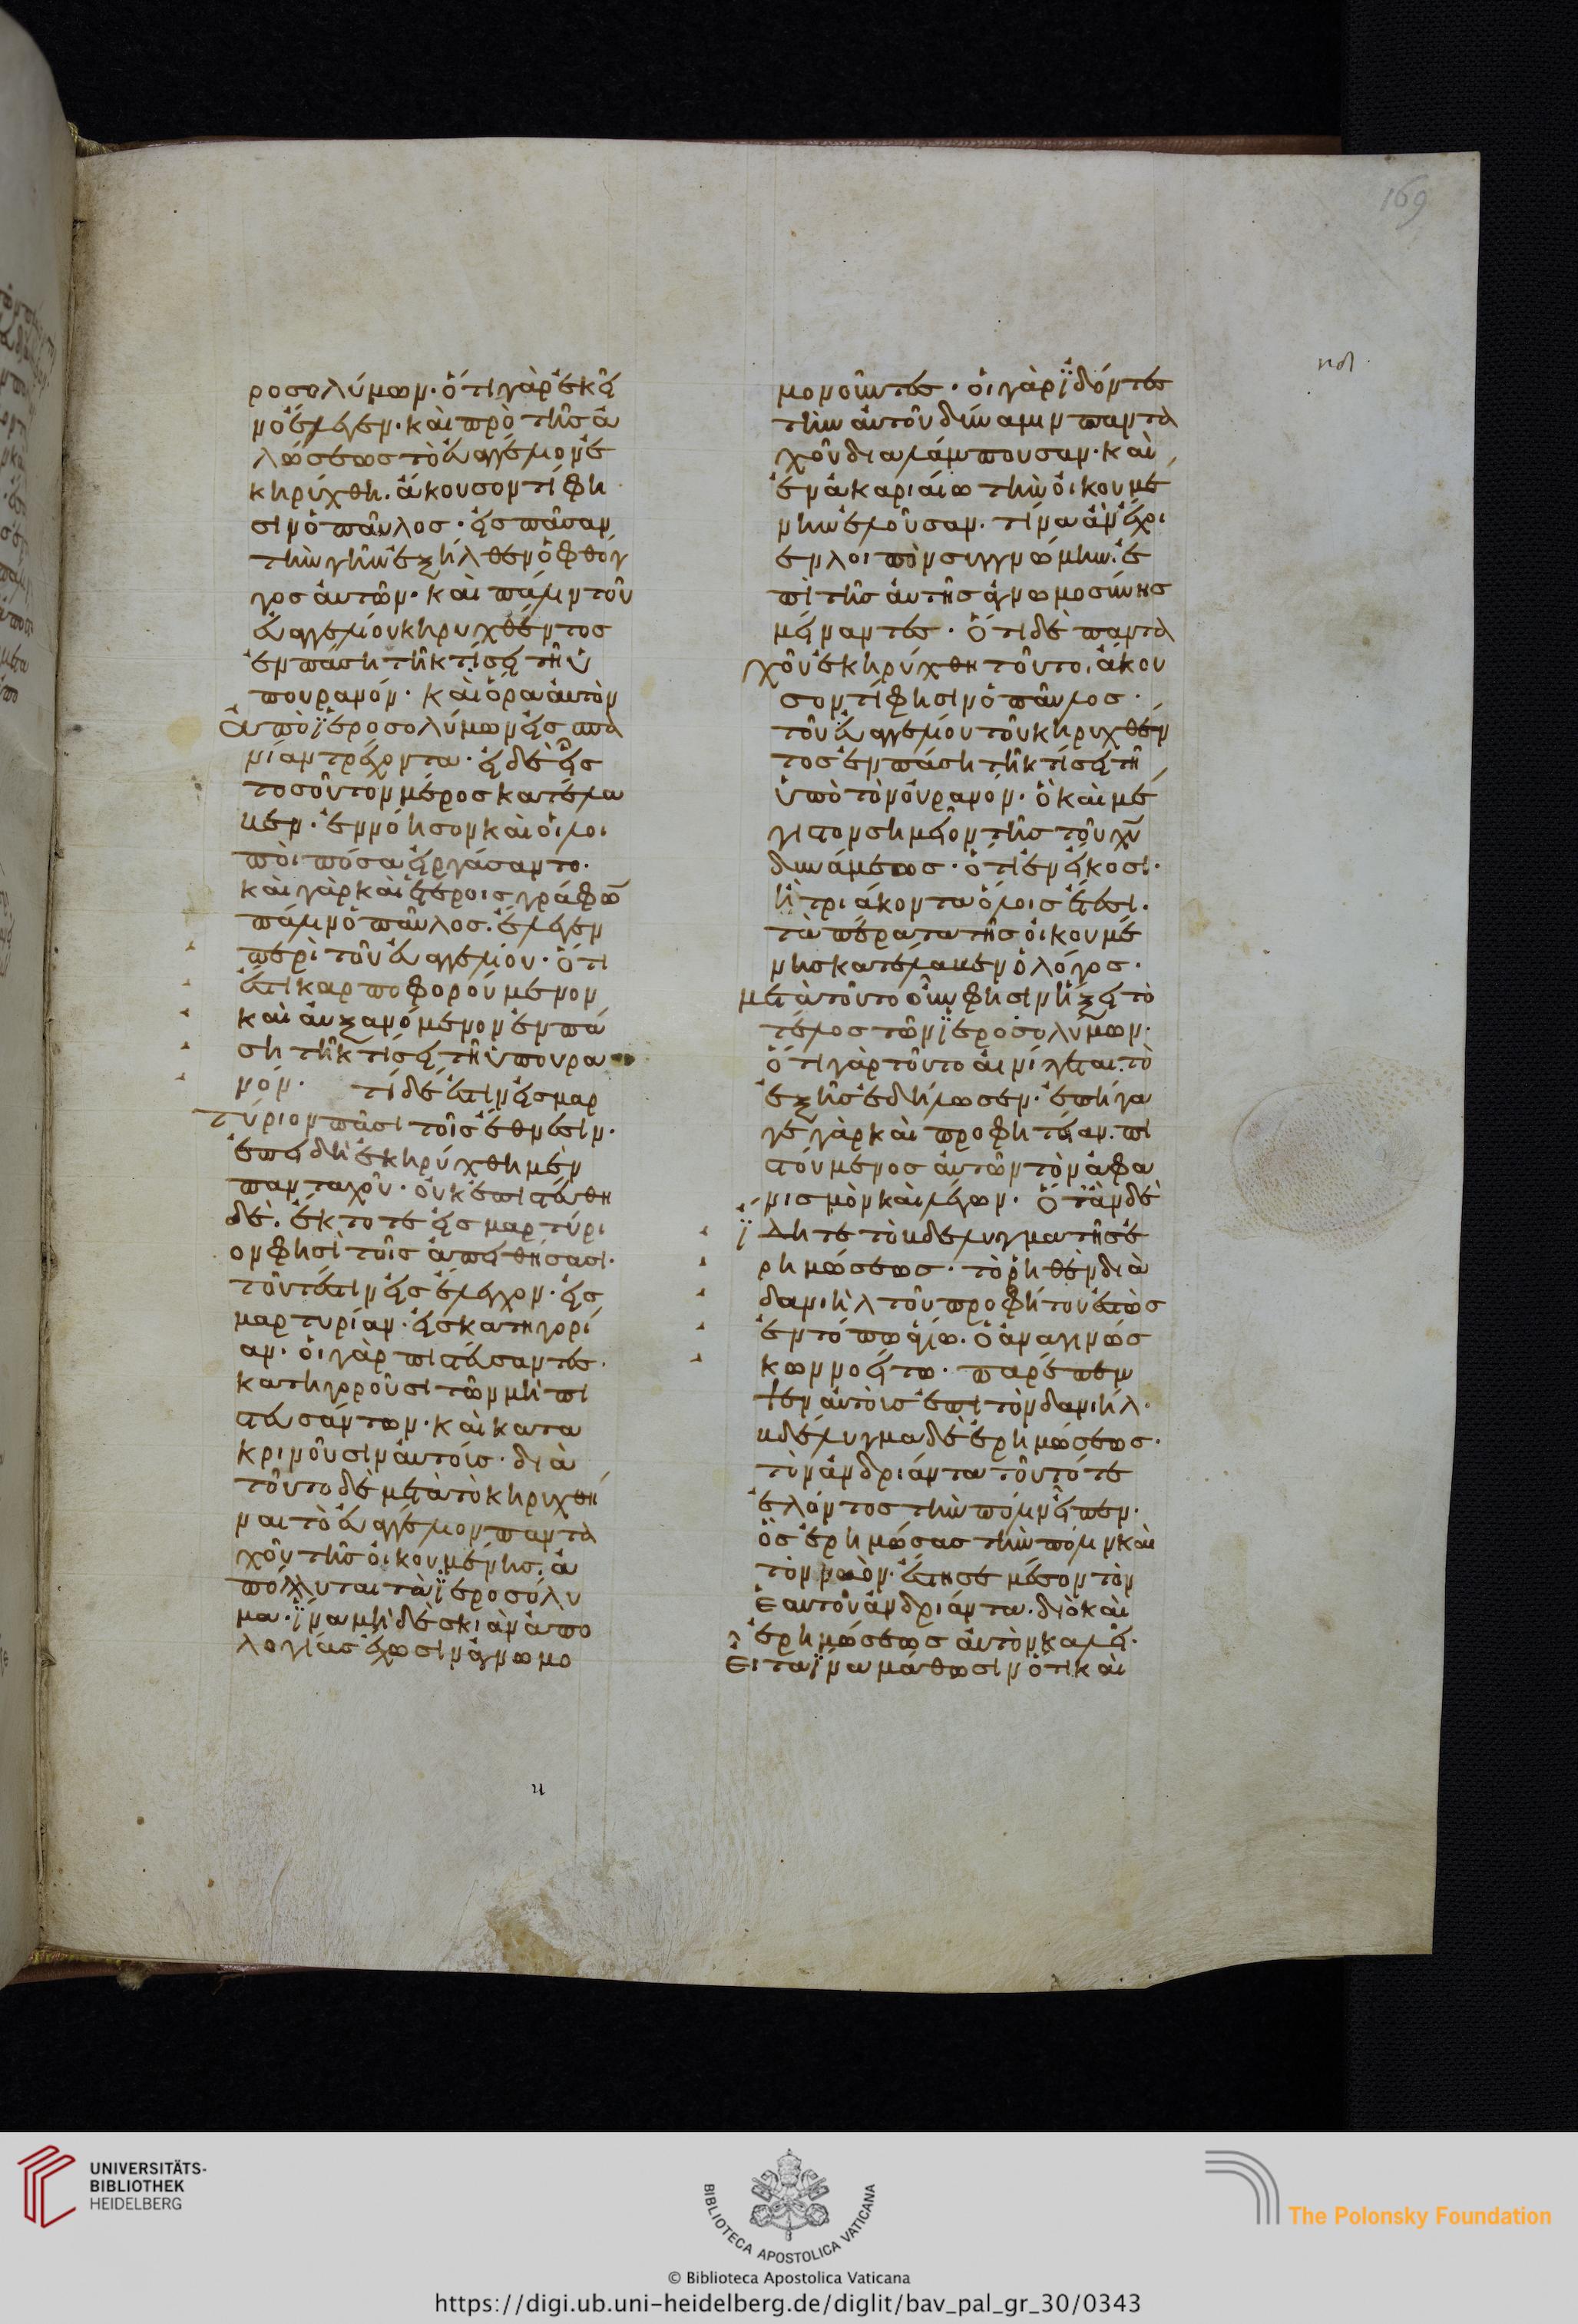 169
ροσολύμων· ὅτι γὰρ ἐκεῖ
νο ἔλεγεν· καὶ πρὸ τῆς ἁ
λώσεως τὸ εὐαγγέλιον ἐ
κηρύχθη. ἄκουσον τί φη
σιν ὁ παῦλος· εἰς πᾶσαν
τὴν γῆν ἐξῆλθεν ὁ φθόγ
γος αὐτῶν· καὶ πάλιν τοῦ
εὐαγγελίου κηρυχθέντος
ἐν πάσῃ τῇ κτίσει τῇ ὑ
π᾽ οὐρανόν· καὶ ὁρᾷ αὐτὸν
ἀπὸ ϊεροσολύμων εἰς σπα
νίαν τρέχοντα· εἰ δὲ εἷς
τοσοῦτον μέρος κατέλα
βεν· ἐννόησον καὶ οἱ λοι
ποὶ πόσα εἰργάσαντο·
καὶ γὰρ καὶ ἑτέροις γράφω̅
πάλιν ὁ παῦλος. ἔλεγεν
περὶ τοῦ εὐαγγελίου· ὅτι
ἐστὶ καρποφορούμενον
καὶ αὐξανόμενον ἐν πά
σῃ τῇ κτίσει τῇ ὑπ᾽ οὐρα
νόν· τί δέ ἐστιν εἰς μαρ
τύριον πᾶσι τοῖς ἔθνεσιν·
ἐπειδὴ ἐκηρύχθη μὲν
πανταχοῦ· οὐκ ἐπιστεύθη
δέ. ἔκτοτε εἰς μαρτύρι
ον φησὶ τοῖς ἀπειθήσασι·
τοῦτ᾽ ἔστιν εἰς ἔλεγχον· εἰς
μαρτυρίαν· εἰς κατηγορί
αν· οἱ γὰρ πιστεύσαντες·
κατηγοροῦσι τῶν μὴ πι
στευσάντων· καὶ κατα
κρινοῦσιν αὐτούς· διὰ
τοῦτο δὲ μετὰ τὸ κηρυχθῆ
ναι τὸ εὐαγγέλιον παντα
χοῦ τῆς οἰκουμένης. ἀ
πόλλυται τὰ ϊεροσόλυ
μα· ϊνα μηδὲ σκιὰν ἀπο
λογίας ἔχωσιν ἀγνωμο
μονοῦντες· οἱ γὰρ ϊδόντες
τὴν αὐτοῦ δύναμιν παντα
χοῦ διαλάμπουσαν· καὶ
ἐν ἀκαριαίῳ τὴν οἰκουμέ
νην ἑλοῦσαν. τίνα ἂν ἔχοι
εν λοιπὸν συγγνώμην. ἐ
πὶ τῆς αὐτῆς ἀγνωμοσύνης
μείναντες· ὅτι δὲ παντα
χοῦ ἐκηρύχθη τοῦτο, ἄκου
σον τί φησιν ὁ παῦλος·
τοῦ εὐαγγελίου τοῦ κηρυχθέν
τος ἐν πάσῃ τῇ κτίσει τῇ
ὑπὸ τὸν οὐρανόν· ὃ καὶ μέ
γιστον σημεῖον τῆς τοῦ χυ̅
δυνάμεως· ὅτι ἐν εἴκοσι·
ἢ τριάκοντα ὅλοις ἔτεσι·
τὰ πέρατα τῆς οἰκουμέ
νης κατέλαβεν ὁ λόγος·
μετὰ τοῦτο οὖν φησὶν ἥξει τὸ
τέλος τῶν ϊεροσολύμων·
ὅτι γὰρ τοῦτο αἰνίττεται. τὸ
ἑξῆς ἐδήλωσεν· ἐπήγα
γε γὰρ καὶ προφητείαν. πι
στούμενος αὐτῶν τὸν ἀφα
νισμὸν καὶ λέγων· ὅταν δὲ
ϊδητε τὸ βδέλυγμα τῆς ἐ
ρημώσεως· τὸ ῥηθὲν διὰ
δανιὴλ τοῦ προφήτου ἑστὼς
ἐν τόπῳ ἁγίῳ. ὁ ἀναγινώς
κων νοείτω· παρέπεμ
ψεν αὐτοὺς ἐπὶ τὸν δανιήλ·
βδέλυγμα δὲ ἐρημώσεως·
τὸν ἀνδριάντα τοῦ τότε
ἑλόντος τὴν πόλιν εἶπεν·
ὃς ἐρημώσας τὴν πόλιν καὶ
τὸν ναὸν· ἔστησε μέσον τὸν
ἑαυτοῦ ἀνδριάντα· διὸ καὶ
ἐρημώσεως αὐτὸν καλεῖ·
εἶτα ϊνα μάθωσιν ὅτι καὶ
UNIVERSITÄTS-
BIBLIOTHEK
HEIDELBERG
BIBLIOTECA APOSTOLICA VATICANA
The Polonsky Foundation
© Biblioteca Apostolica Vaticana
https://digi.ub.uni-heidelberg.de/diglit/bav_pal_gr_30/0343